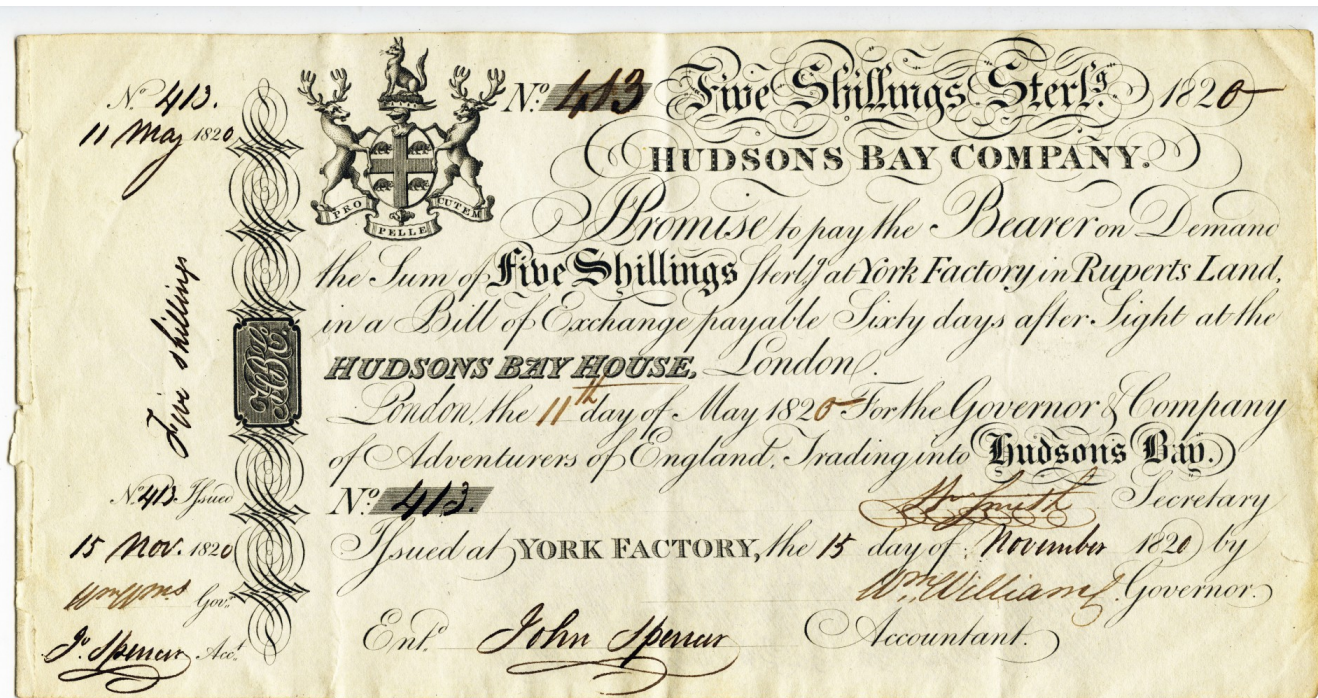 No. 413.
11 May 1820
Five shillings
No. 413. Issued
15 Nov. 1820
Wm Wms Govr.
Jo. Spencer Acct.
HBC
PRO PELLE CUTEM
No. 413 Five Shillings Sterlg. 1820
HUDSONS BAY COMPANY.
I Promise to pay the Bearer on Demand
the Sum of Five Shillings Sterlg. at York Factory in Ruperts Land,
in a Bill of Exchange payable Sixty days after Sight at the
HUDSONS BAY HOUSE, London.
London, the 11th day of May 1820 For the Governor & Company
of Adventurers of England, Trading into Hudsons Bay.
No. 413. Wm Smith Secretary
Issued at YORK FACTORY, the 15 day of November 1820 by
Wm. Williams Governor.
Entd. John Spencer Accountant.